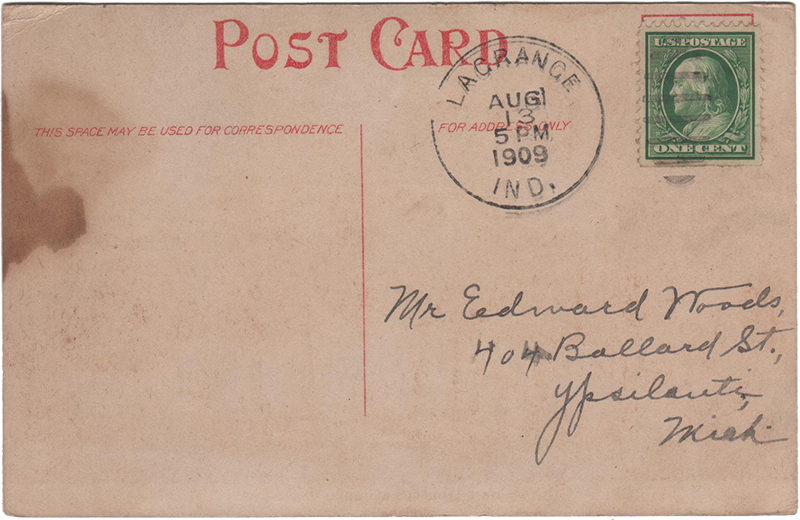 POST CARD
THIS SPACE MAY BE USED FOR CORRESPONDENCE
FOR ADDRESS ONLY
LAGRANGE
AUG
13
5 PM
1909
IND.
U.S. POSTAGE
ONE CENT
Mr Edward Woods,
404 Ballard St.,
Ypsilanti,
Mich.